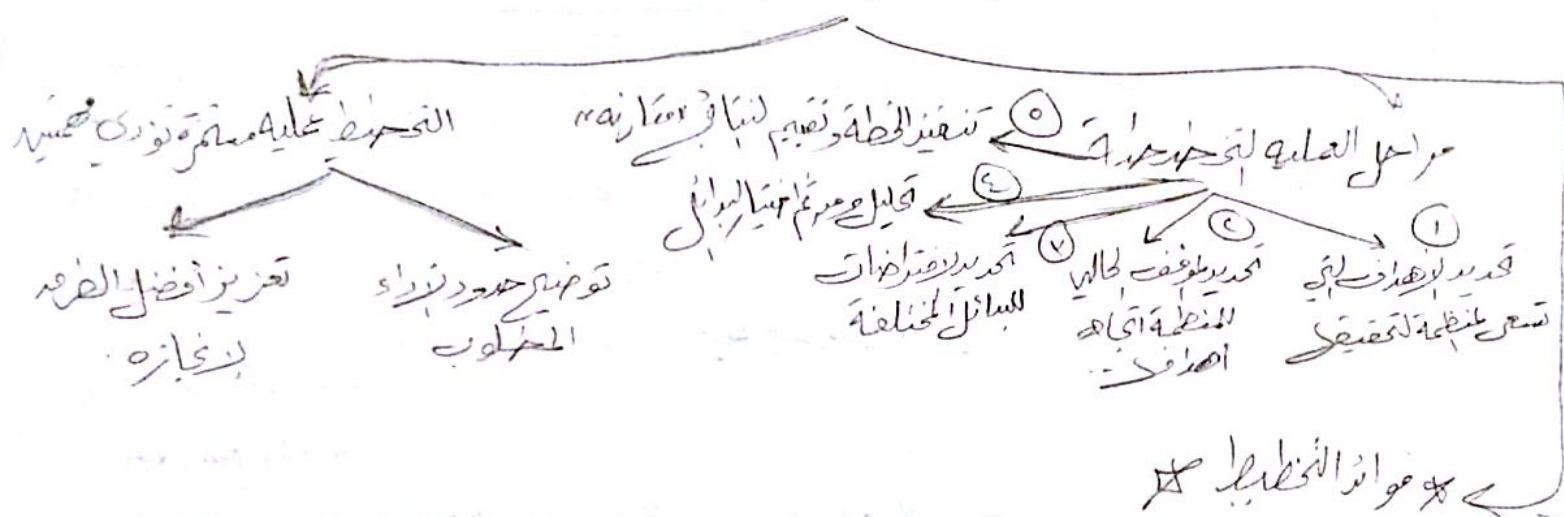 مراحل العملية التخطيطية
① تحديد الأهداف التي
تسعى المنظمة لتحقيقها
② تحديد الموقف الحالي
للمنظمة اتجاه
أهدافها
③ تحديد الافتراضات
للبدائل المختلفة
④ تحليل ومن ثم اختيار البدائل
⑤ تنفيذ الخطة وتقييم النتائج "مقارنة"
التخطيط عملية مستمرة تؤدي
توضيح حدود الأداء
المطلوب
تعزيز أفضل الطرق
لإنجازه
* فوائد التخطيط *